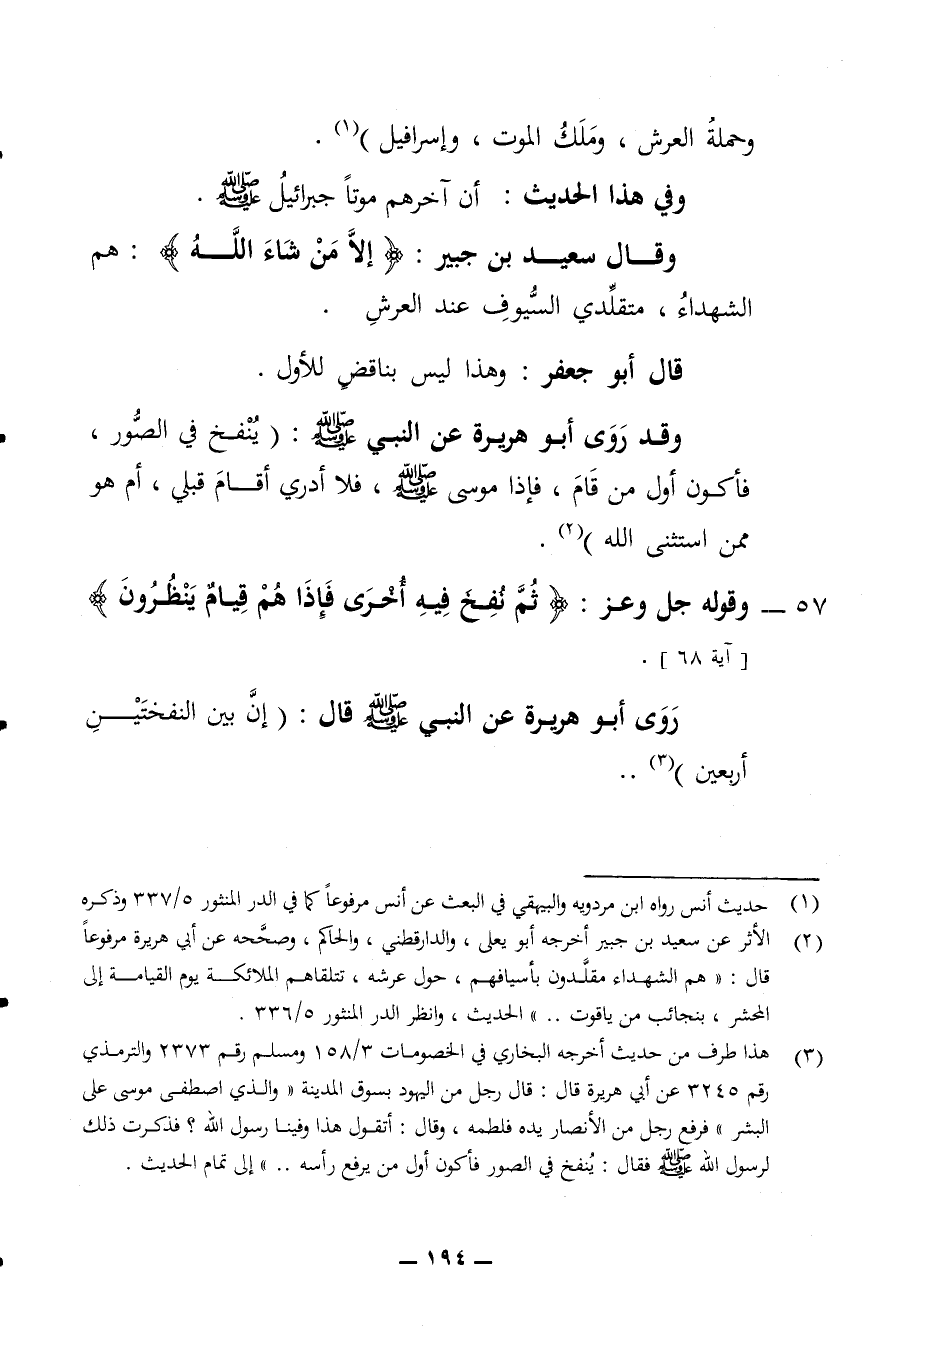 وحملةُ العرش ، ومَلَكُ الموت ، وإسرافيل )(١) .
وفي هذا الحديث : أن آخرهم موتاً جبرائيلُ ﷺ .
وقال سعيد بن جبير : ﴿ إلاَّ مَنْ شَاءَ اللَّهُ ﴾ : هم
الشهداءُ ، متقلِّدي السُّيوفِ عند العرشِ .
قال أبو جعفر : وهذا ليس بناقضٍ للأول .
وقد رَوَى أبو هريرة عن النبي ﷺ : ( يُنْفخ في الصُّور ،
فأكون أول من قَامَ ، فإذا موسى ﷺ ، فلا أدري أقامَ قبلي ، أم هو
ممن استثنى الله )(٢) .
٥٧ ــ وقوله جل وعز : ﴿ ثُمَّ نُفِخَ فِيهِ أُخْرَى فَإِذَا هُمْ قِيامٌ يَنْظُرُونَ ﴾
[ آية ٦٨ ] .
رَوَى أبو هريرة عن النبي ﷺ قال : ( إنَّ بين النفختَيْنِ
أربعين )(٣) ..
(١) حديث أنس رواه ابن مردويه والبيهقي في البعث عن أنس مرفوعاً كما في الدر المنثور ٣٣٧/٥ وذكره
(٢) الأثر عن سعيد بن جبير أخرجه أبو يعلى ، والدارقطني ، والحاكم ، وصحَّحه عن أبي هريرة مرفوعاً
قال : « هم الشهداء مقلَّدون بأسيافهم ، حول عرشه ، تتلقاهم الملائكة يوم القيامة إلى
المحشر ، بنجائب من ياقوت .. » الحديث ، وانظر الدر المنثور ٣٣٦/٥ .
(٣) هذا طرف من حديث أخرجه البخاري في الخصومات ١٥٨/٣ ومسلم رقم ٢٣٧٣ والترمذي
رقم ٣٢٤٥ عن أبي هريرة قال : قال رجل من اليهود بسوق المدينة « والذي اصطفى موسى على
البشر » فرفع رجل من الأنصار يده فلطمه ، وقال : أتقول هذا وفينا رسول الله ؟ فذكرت ذلك
لرسول الله ﷺ فقال : يُنفخ في الصور فأكون أول من يرفع رأسه .. » إلى تمام الحديث .
ــ ١٩٤ ــ